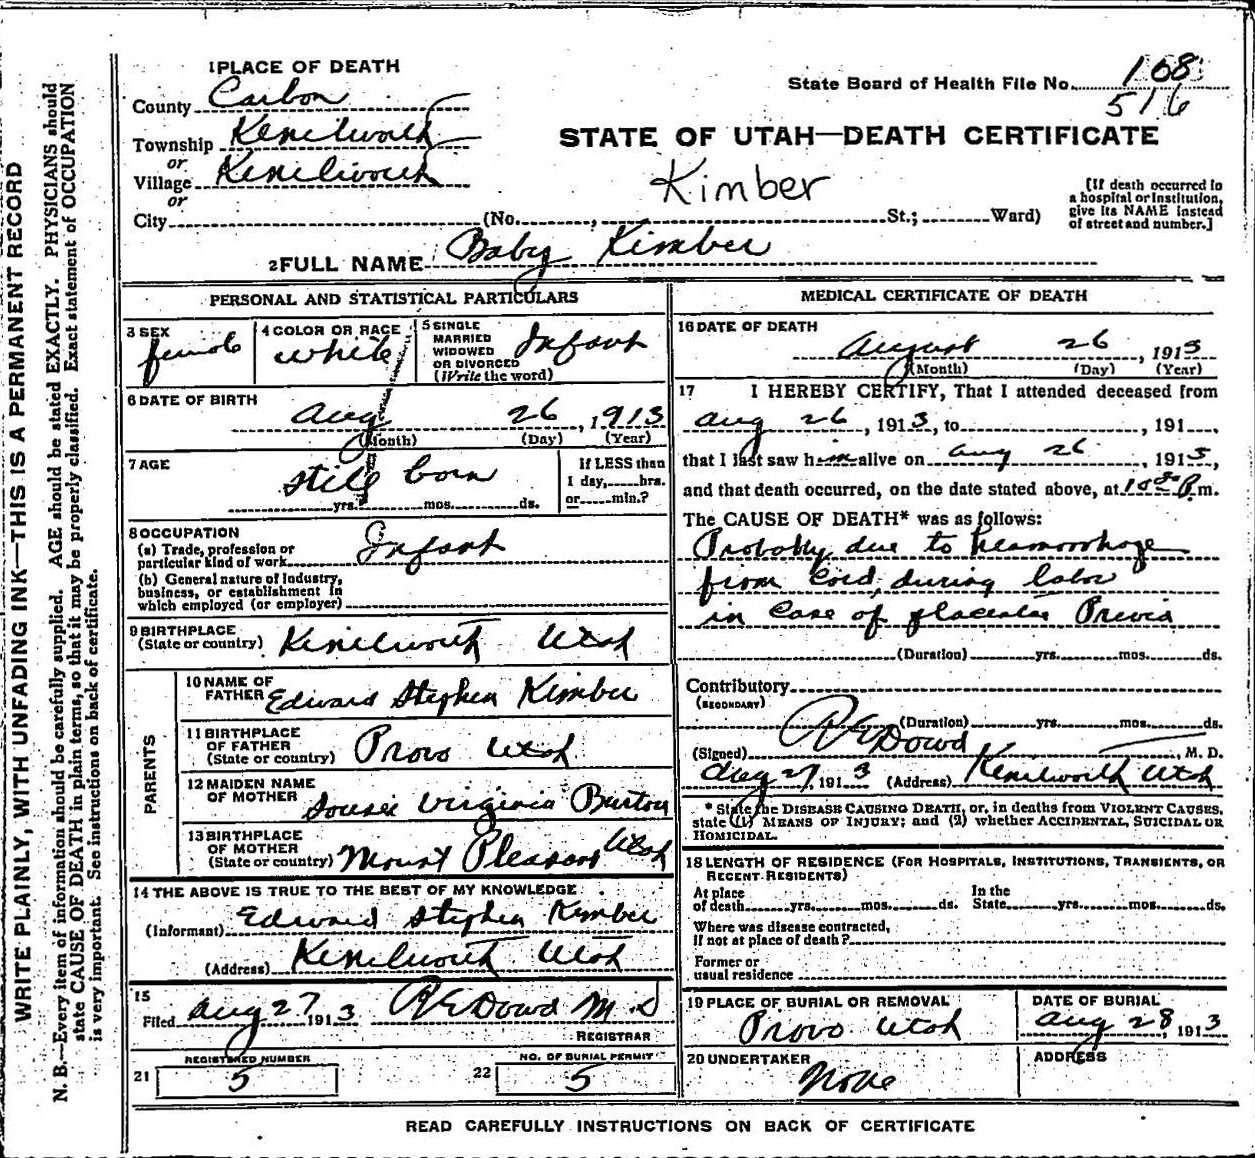 WRITE PLAINLY, WITH UNFADING INK—THIS IS A PERMANENT RECORD
N. B.—Every item of information should be carefully supplied. AGE should be stated EXACTLY. PHYSICIANS should
state CAUSE OF DEATH in plain terms, so that it may be properly classified. Exact statement of OCCUPATION
is very important. See instructions on back of certificate.
1 PLACE OF DEATH
County Carbon
Township Kenilworth
or
Village Kenilworth
or
City (No. , St.; Ward)
State Board of Health File No. 108
516
STATE OF UTAH—DEATH CERTIFICATE
Kimber
[If death occurred in
a hospital or institution,
give its NAME instead
of street and number.]
2 FULL NAME Baby Kimber
PERSONAL AND STATISTICAL PARTICULARS
3 SEX
female
4 COLOR OR RACE
white
5 SINGLE
MARRIED
WIDOWED
OR DIVORCED
(Write the word)
Infant
6 DATE OF BIRTH
Aug 26, 1913
(Month) (Day) (Year)
7 AGE
still born
yrs. mos. ds.
If LESS than
1 day, hrs.
or min.?
8 OCCUPATION
(a) Trade, profession or
particular kind of work Infant
(b) General nature of industry,
business, or establishment in
which employed (or employer)
9 BIRTHPLACE
(State or country) Kenilworth Utah
PARENTS
10 NAME OF
FATHER Edward Stephen Kimber
11 BIRTHPLACE
OF FATHER
(State or country) Provo Utah
12 MAIDEN NAME
OF MOTHER Virginia Burton
13 BIRTHPLACE
OF MOTHER
(State or country) Mount Pleasant Utah
14 THE ABOVE IS TRUE TO THE BEST OF MY KNOWLEDGE
(Informant) Edward Stephen Kimber
(Address) Kenilworth Utah
15
Filed Aug 27 1913 R E Dowd M.D
REGISTRAR
REGISTERED NUMBER
21 5
NO. OF BURIAL PERMIT
22 5
MEDICAL CERTIFICATE OF DEATH
16 DATE OF DEATH
August 26, 1913
(Month) (Day) (Year)
17 I HEREBY CERTIFY, That I attended deceased from
Aug 26, 1913, to , 191 ,
that I last saw him alive on Aug 26, 1913,
and that death occurred, on the date stated above, at P.m.
The CAUSE OF DEATH* was as follows:
Probably due to heamorrhage
from cord, during labor
in case of placenta Previa
(Duration) yrs. mos. ds.
Contributory
(SECONDARY)
(Duration) yrs. mos. ds.
(Signed) R E Dowd M. D.
Aug 27, 1913 (Address) Kenilworth Utah
* State the DISEASE CAUSING DEATH, or, in deaths from VIOLENT CAUSES,
state (1) MEANS OF INJURY; and (2) whether ACCIDENTAL, SUICIDAL OR
HOMICIDAL.
18 LENGTH OF RESIDENCE (FOR HOSPITALS, INSTITUTIONS, TRANSIENTS, OR
RECENT RESIDENTS)
At place
of death yrs. mos. ds.
In the
State yrs. mos. ds.
Where was disease contracted,
if not at place of death?
Former or
usual residence
19 PLACE OF BURIAL OR REMOVAL
Provo Utah
DATE OF BURIAL
Aug 28, 1913
20 UNDERTAKER
None
ADDRESS
READ CAREFULLY INSTRUCTIONS ON BACK OF CERTIFICATE